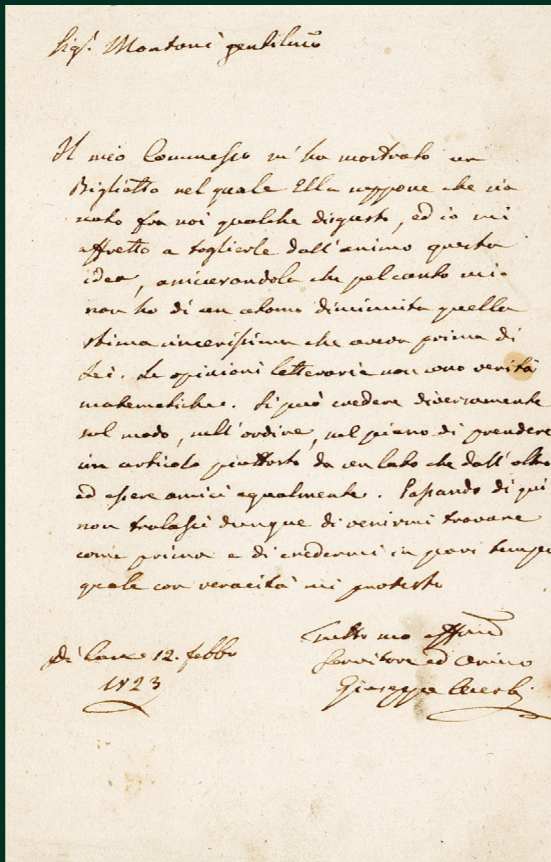 Sig.r Montani gentiliss.o
Il mio Commesso m'ha mostrato un
Biglietto nel quale Ella suppone che sia
nato fra noi qualche disgusto, ed io mi
affretto a togliерle dall'animo questa
idea, assicurandola che pel canto mi-
non ho di un atomo diminuita quella
stima sincerissima che aveva prima di
Lei. Le opinioni letterarie non sono verità
matematiche. Si può credere diversamente
sul modo, sull'ordine, sul piano di prendere
un articolo piuttosto da un lato che dall'altro
ed essere amici egualmente. Passando di qui
non tralasci dunque di venirmi trovare
come prima e di credermi in pari tempo
quale con veracità mi protesto
Tutto suo aff.mo
Servitore ed Amico
Giuseppe Acerbi
Di Casa 12. febb.o
1823